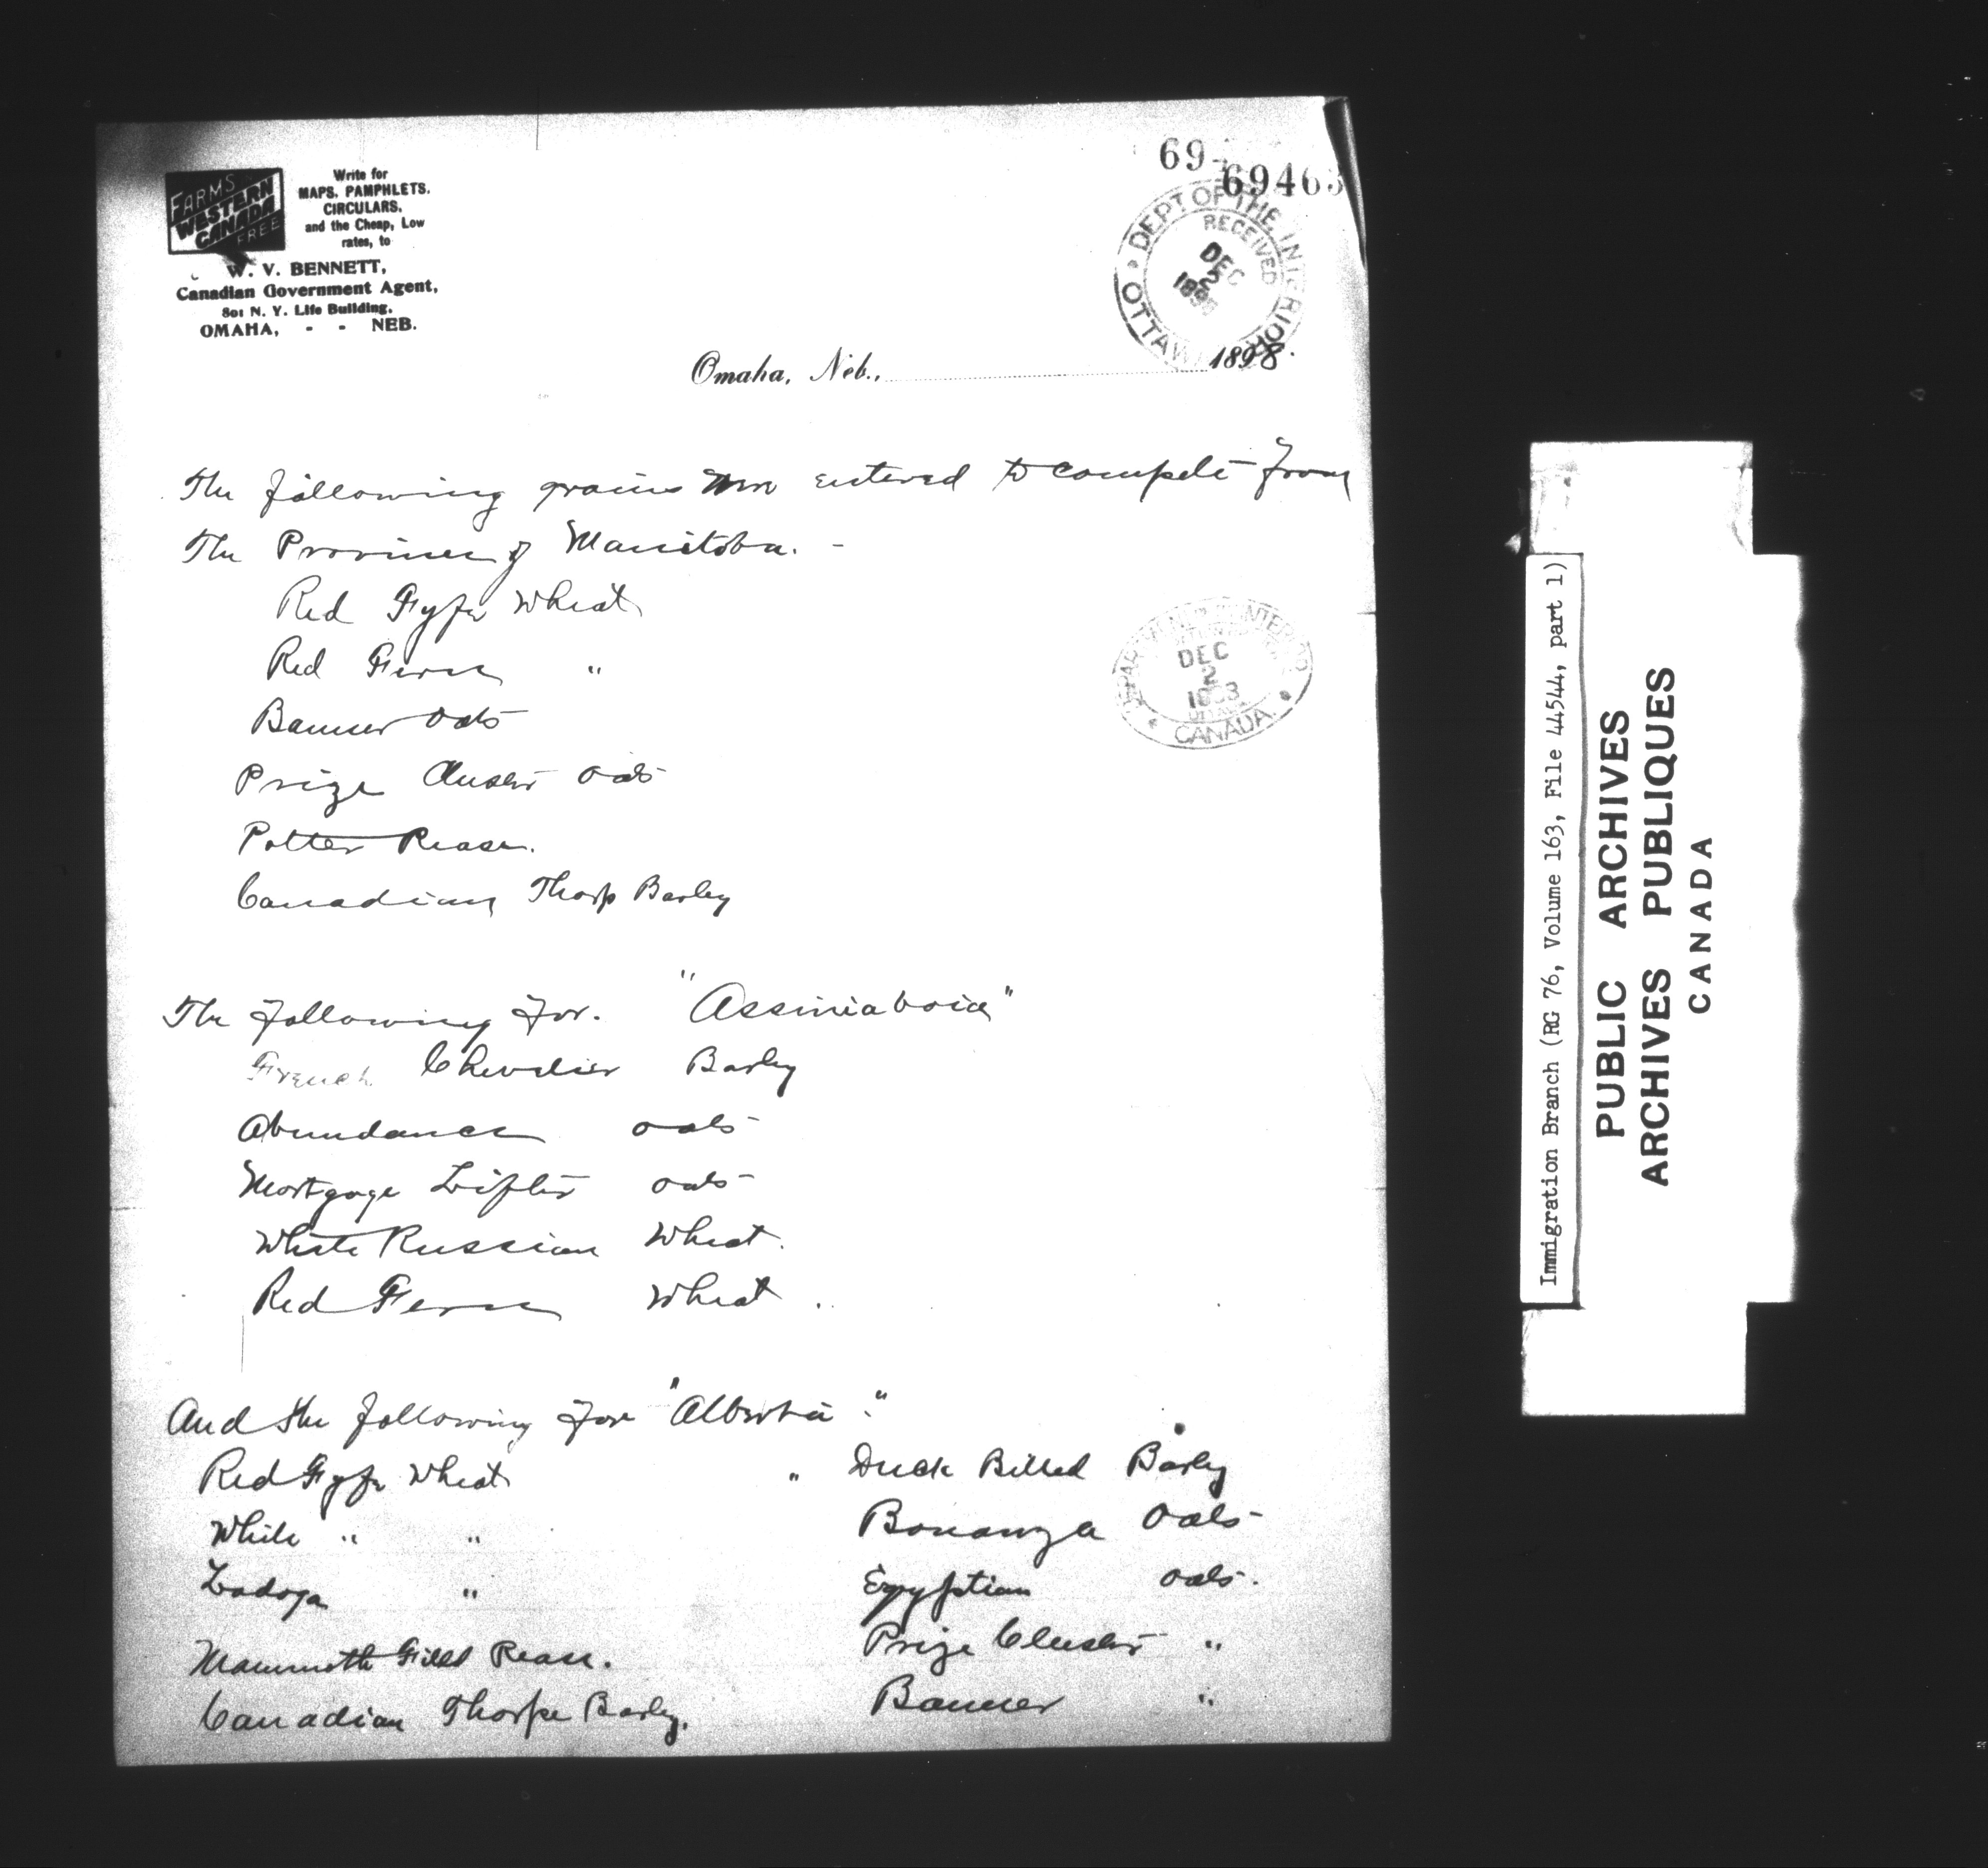 69-
69463
FARMS
WESTERN
CANADA
FREE
Write for
MAPS, PAMPHLETS,
CIRCULARS,
and the Cheap, Low
rates, to
W. V. BENNETT,
Canadian Government Agent,
801 N. Y. Life Building,
OMAHA, - - NEB.
DEPT OF THE INTERIOR
RECEIVED
DEC
2
OTTAWA
Omaha, Neb., 1898.
The following grains were entered to compete from
The Province of Manitoba. -
Red Fyfe Wheat
Red Fern "
Banner oats
Prize Cluster oats
Potter Pease.
Canadian Thorp Barley
DEC
2
CANADA
The following for. "Assiniaboia"
French Chevalier Barley
Abundance oats
Mortgage Lifter oats
White Russian Wheat.
Red Fern Wheat.
And the following for "Alberta".
Red Fyfe Wheat " Duck Billed Barley
White " " Bonanza Oats
Ladoga " Egyptian oats.
Mammoth Field Pease. Prize Cluster "
Canadian Thorpe Barley. Banner "
Immigration Branch (RG 76, Volume 163, File 44544, part 1)
PUBLIC ARCHIVES
ARCHIVES PUBLIQUES
CANADA